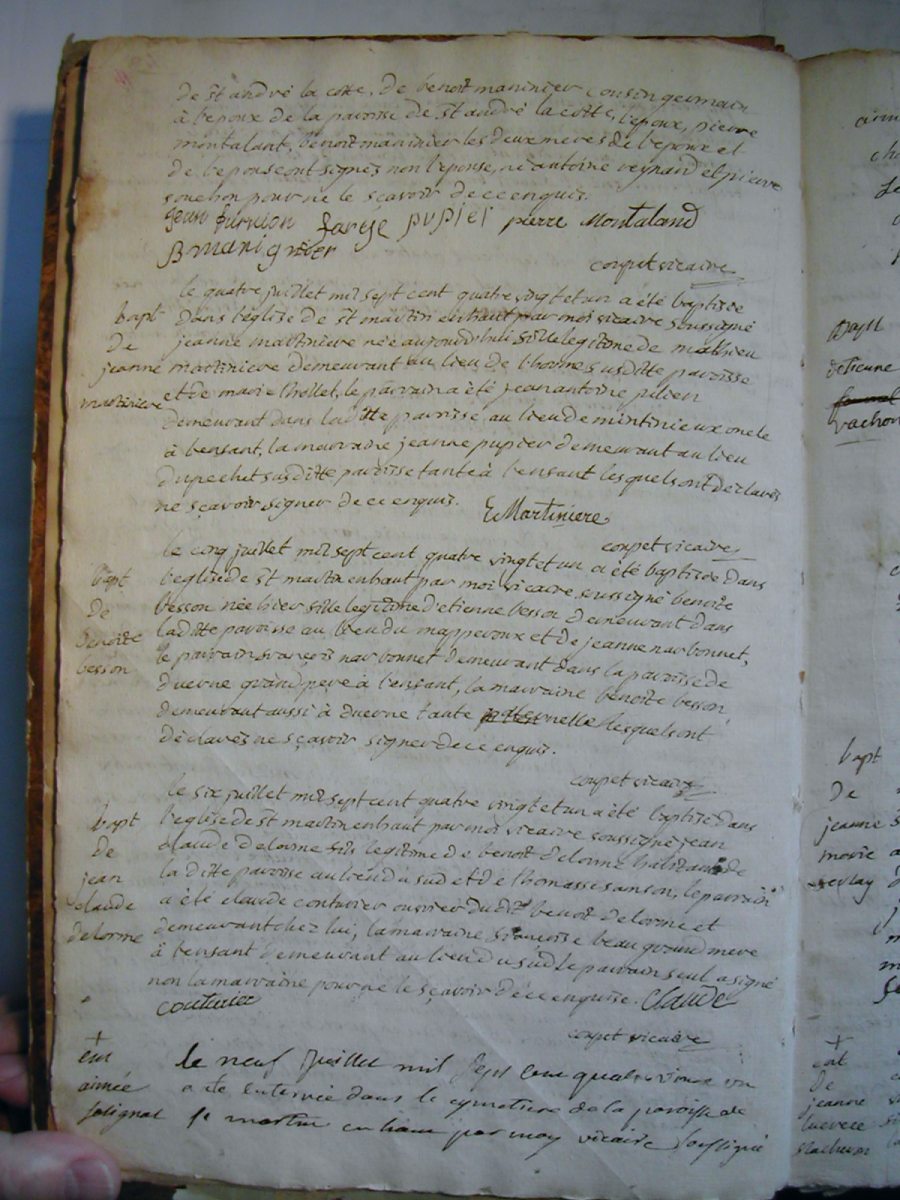 de st andré la coste, de benoit maninier cousin germain
à l'epoux de la paroisse de st andré la cotte, l'epoux, pierre
montaland, benoit maninier les deux meres de l'epoux et
de l'epouse ont signés non l'epouse, ni antoine reynard et pierre
souchon pour ne le sçavoir de ce enquis.
jean farge pupier pierre Montaland
B manignier
coupet vicaire
le quatre juillet mil sept cent quatre vingt et un a été baptisée
bapt
dans l'eglise de st martin enhaut par moi vicaire soussigné
de
jeanne martiniere née aujourd'hui fille legitime de mathieu
jeanne
martiniere demeurant au lieu de susditte paroisse
martiniere
et de marie thollet, le parrain a été jean antoine
demeurant dans la ditte paroisse au lieu de mintinieux oncle
à l'enfant, la marraine jeanne pupier demeurant au lieu
du pechet susditte paroisse tante à l'enfant lesquels ont declarés
ne sçavoir signer de ce enquis. Martiniere
coupet vicaire
le cinq juillet mil sept cent quatre vingt et un a été baptisée dans
bapt
l'eglise de st martin enhaut par moi vicaire soussigné benoite
de
besson née hier fille legitime d'etienne besson demeurant dans
benoite
la ditte paroisse au lieu du mapperoux et de jeanne narbonnet,
besson
le parrain françois narbonnet demeurant dans la paroisse de
duerne grand pere à l'enfant, la marraine benoite besson
demeurant aussi à duerne tante paternelle lesquels ont
declarés ne sçavoir signer de ce enquis.
coupet vicaire
le six juillet mil sept cent quatre vingt et un a été baptisé dans
bapt
l'eglise de st martin enhaut par moi vicaire soussigné jean
de
claude delorme fils legitime de benoit delorme habitant de
jean
la ditte paroisse au lieu du sud et de thomasse sanson, le parrain
claude
a été claude couturier ouvrier du dit benoit delorme et
delorme
demeurant chez lui, la marraine françoise beau grand mere
à l'enfant demeurant au lieu du sud le parrain seul a signé
non la marraine pour ne le sçavoir de ce enquise. Claude
couturier
coupet vicaire
+
ent
le neuf juillet mil sept cent quatre vingt un
aimée
a eté enterrée dans le cymetiere de la paroisse de
solignat
st martin en haut par moy vicaire soussigné
bapt
detienne
vachon
bapt
de
jeanne
marie
+
ent
de
jeanne